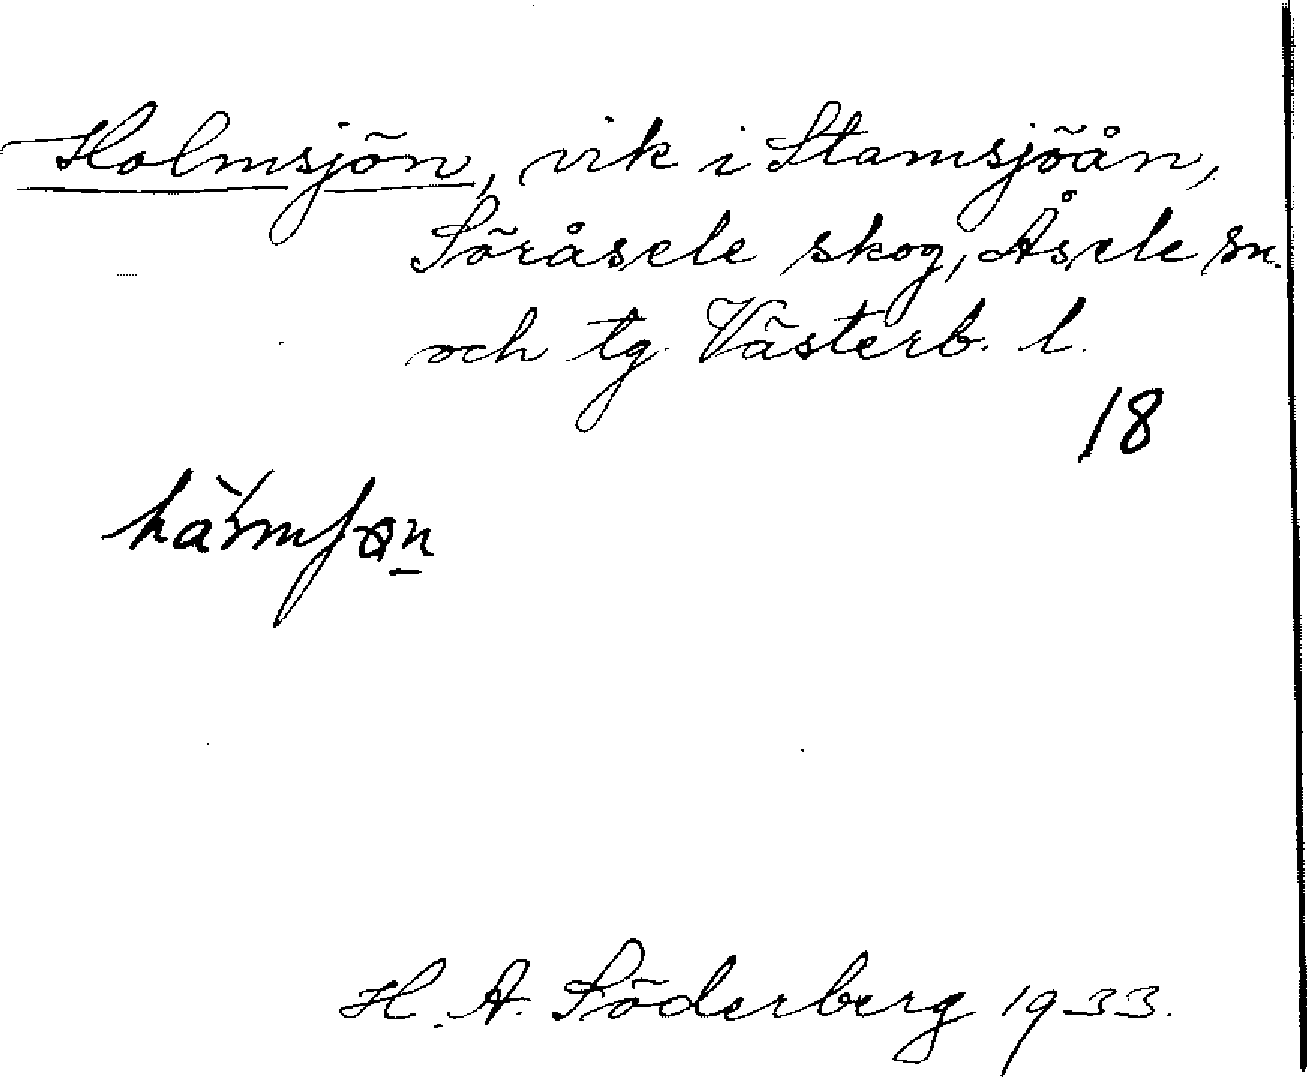 Holmsjön, vik i Stamsjöån,
Söråsele skog, Åsele sn.
och tg. Västerb. l.
18
H. A. Söderberg 1933.